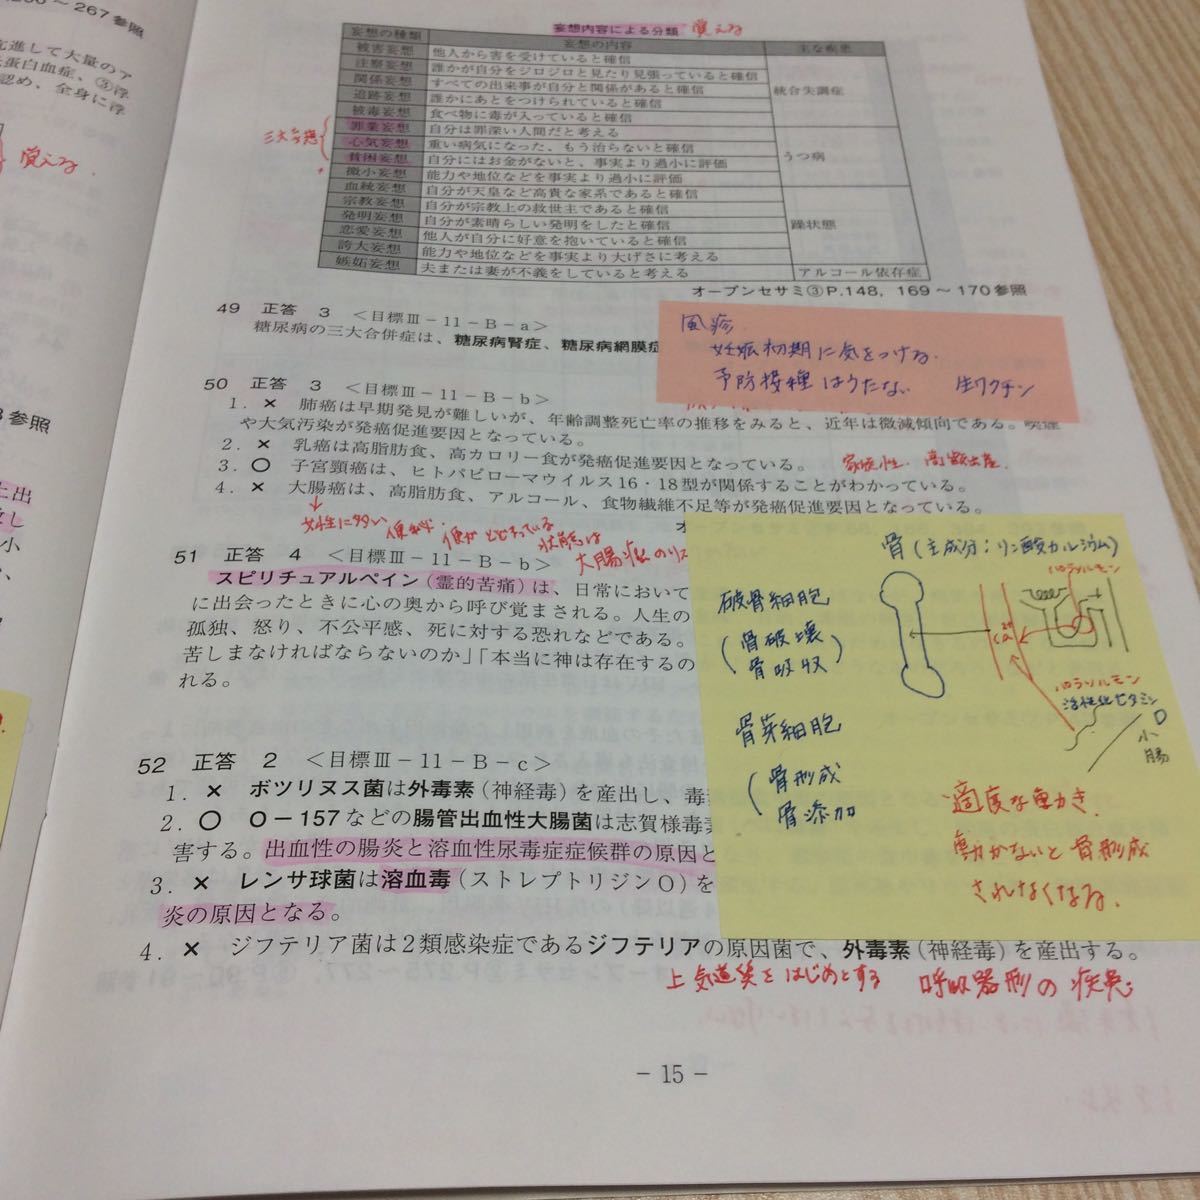 ～267参照
進して大量のア
蛋白血症、③浮
認め、全身に浮
覚える
妄想内容による分類 覚える
妄想の種類 妄想の内容 主な疾患
被害妄想 他人から害を受けていると確信
注察妄想 誰かが自分をジロジロと見たり見張っていると確信
関係妄想 すべての出来事が自分と関係があると確信 統合失調症
追跡妄想 誰かにあとをつけられていると確信
被毒妄想 食べ物に毒が入っていると確信
罪業妄想 自分は罪深い人間だと考える
心気妄想 重い病気になった、もう治らないと確信
貧困妄想 自分にはお金がないと、事実より過小に評価 うつ病
微小妄想 能力や地位などを事実より過小に評価
血統妄想 自分が天皇など高貴な家系であると確信
宗教妄想 自分が宗教上の救世主であると確信
発明妄想 自分が素晴らしい発明をしたと確信 躁状態
恋愛妄想 他人が自分に好意を抱いていると確信
誇大妄想 能力や地位などを事実より大げさに考える
嫉妬妄想 夫または妻が不義をしていると考える アルコール依存症
オープンセサミ③P.148，169～170参照
49 正答 3 ＜目標Ⅲ－11－B－a＞
糖尿病の三大合併症は、糖尿病腎症、糖尿病網膜症
風疹
妊娠初期に気をつける。
予防接種はうたない 生ワクチン
50 正答 3 ＜目標Ⅲ－11－B－b＞
1．× 肺癌は早期発見が難しいが、年齢調整死亡率の推移をみると、近年は微減傾向である。喫煙
や大気汚染が発癌促進要因となっている。
2．× 乳癌は高脂肪食、高カロリー食が発癌促進要因となっている。 家族性.高齢出産.
3．○ 子宮頸癌は、ヒトパピローマウイルス16・18型が関係することがわかっている。
4．× 大腸癌は、高脂肪食、アルコール、食物繊維不足等が発癌促進要因となっている。
女性に多い 便秘 便がとどまっている
状態は
大腸癌のリス
51 正答 4 ＜目標Ⅲ－11－B－b＞
スピリチュアルペイン（霊的苦痛）は、日常において
に出会ったときに心の奥から呼び覚まされる。人生の
孤独、怒り、不公平感、死に対する恐れなどである。
苦しまなければならないのか」「本当に神は存在するの
れる。
骨（主成分：リン酸カルシウム）
パラソルモン
破骨細胞
（骨破壊
骨吸収）
パラソルモン
活性化ビタミン
D
小
腸
骨芽細胞
（骨形成
骨添加
適度な動き.
動かないと骨形成
されなくなる.
52 正答 2 ＜目標Ⅲ－11－B－c＞
1．× ボツリヌス菌は外毒素（神経毒）を産出し、毒素
2．○ O－157などの腸管出血性大腸菌は志賀様毒素
害する。出血性の腸炎と溶血性尿毒症症候群の原因と
3．× レンサ球菌は溶血毒（ストレプトリジンO）を
炎の原因となる。
4．× ジフテリア菌は2類感染症であるジフテリアの原因菌で、外毒素（神経毒）を産出する。
上気道炎をはじめとする 呼吸器形の疾患
－15－